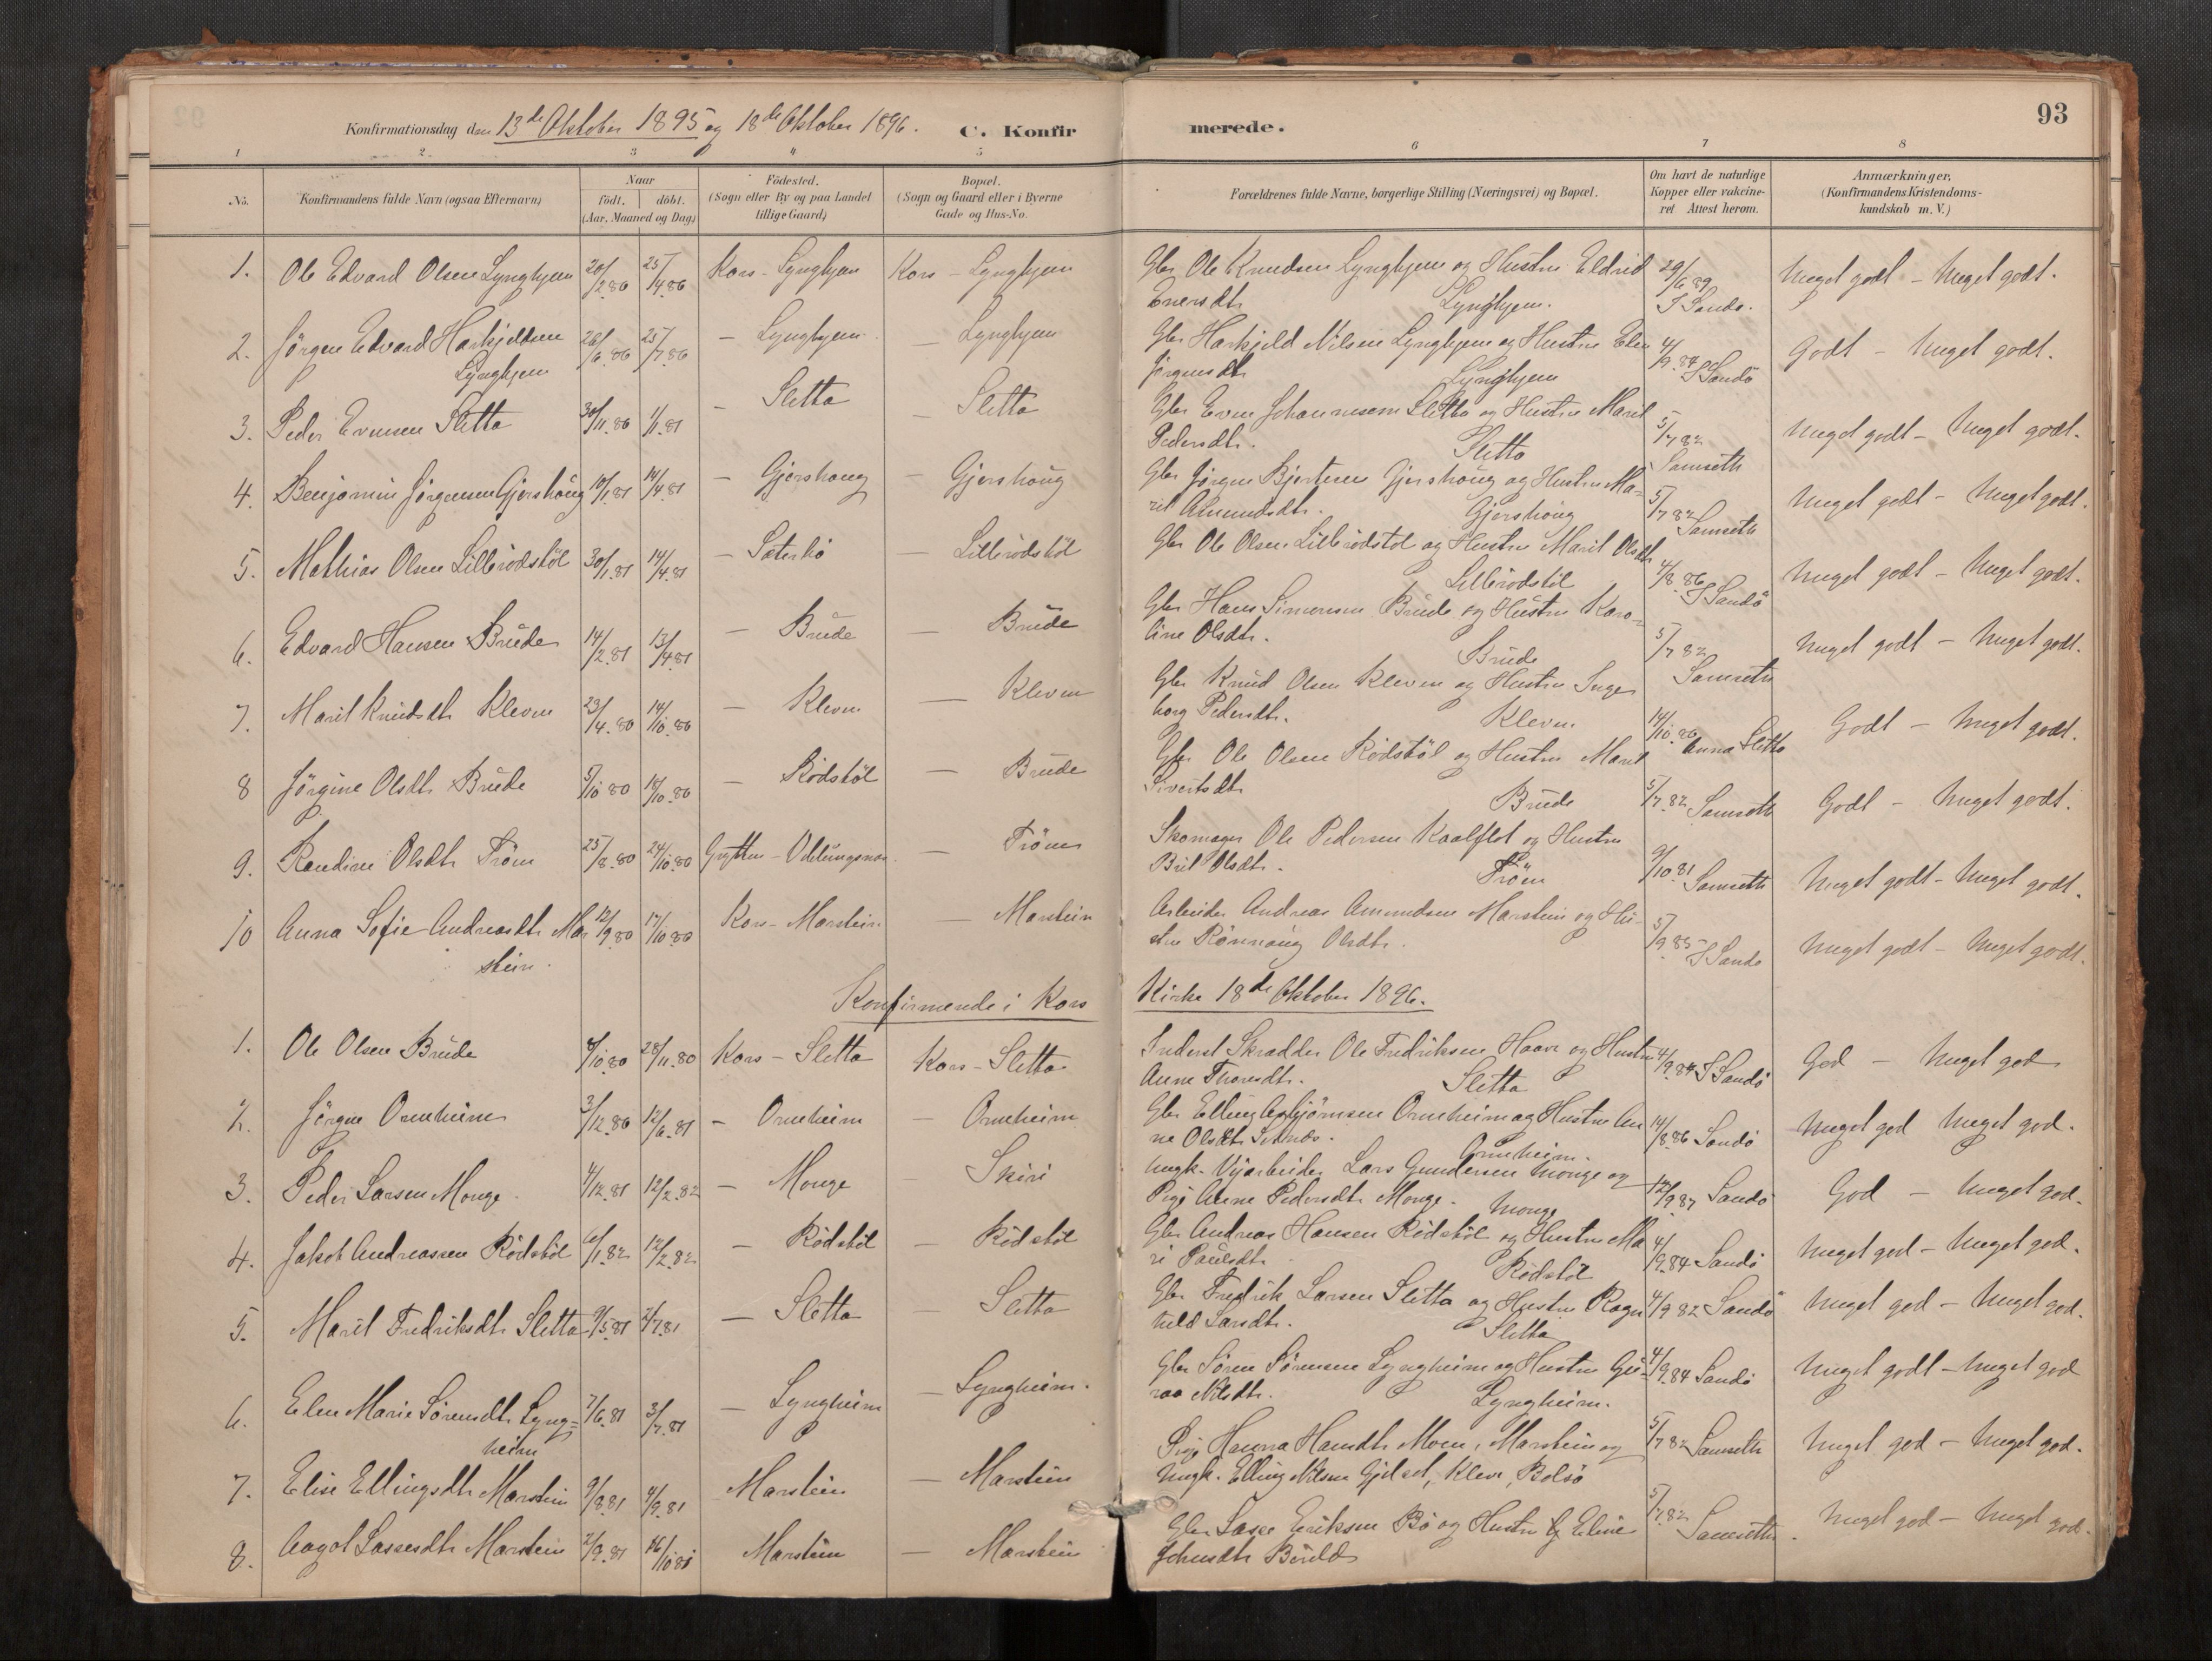 93
Konfirmationsdag den 13de Oktober 1895 og 18de Oktober 1896. C. Konfirmerede.
1 2 3 4 5 6 7 8
No. Konfirmandens fulde Navn (ogsaa Efternavn) Naar födt. döbt. (Aar, Maaned og Dag) Födested. (Sogn eller By og paa Landet tillige Gaard) Bopæl. (Sogn og Gaard eller i Byerne Gade og Hus-No. Forældrenes fulde Navne, borgerlige Stilling (Næringsvei) og Bopæl. Om havt de naturlige Kopper eller vakcineret Attest herom. Anmærkninger, (Konfirmandens Kristendomskundskab m. V.)
1. Ole Edvard Olsen Lynghjem 20/2 80 25/4 86 Kors - Lynghjem Kors - Lynghjem Gbr Ole Knudsen Lynghjem og Hustru Eldrid 29/6 89 Meget godt - Meget godt.
Eversdtr. Lynghjem. S Sandö.
2. Jörgen Edvard Harkjeldsen 26/6 86 25/7 86 - Lynghjem - Lynghjem Gbr Harkjeld Nilsen Lynghjem og Hustru Elen 4/9 84 Godt - Meget godt.
Lynghjem Jörgensdtr Lynghjem S Sandö
3. Peder Evensen Sletta 30/11 80 1/1 81 - Sletta - Sletta Gbr Even Johannesen Sletta og Hustru Marit 5/7 82 Meget godt - Meget godt.
Pedersdtr. Sletta Samseth
4. Benjamin Jörgensen Gjershoug 10/1 81 14/4 81 - Gjershoug - Gjershoug Gbr Jörgen Bjertesen Gjershoug og Hustru Ma- 5/7 82 Meget godt - Meget godt.
rit Amundsdtr. Gjershoug Samseth
5. Mathias Olsen Lillerödstöl 30/1 81 14/4 81 - Sæterbö - Lillerödstöl Gbr Ole Olsen Lillerödstöl og Hustru Marit Olsdtr 4/8 86 Meget godt - Meget godt.
Lillerödstöl S Sandö
6. Edvard Hansen Brude 14/2 81 13/4 81 - Brude - Brude Gbr Hans Simensen Brude og Hustru Karo- 5/7 82 Meget godt - Meget godt.
line Olsdtr. Brude Samseth
7. Marit Knudsdtr Kleven 23/4 80 14/10 80 - Kleven - Kleven Gbr Knud Olsen Kleven og Hustru Inge- 14/10 86 Godt - Meget godt.
borg Pedersdtr. Kleven Anna Sletta
8 Jörgine Olsdtr Brude 5/10 80 18/10 80 - Rödstöl - Brude Gbr Ole Olsen Rödstöl og Hustru Marit 5/7 82 Godt - Meget godt.
Sivertsdtr Brude Samseth
9. Randine Olsdtr Tröen 25/8 80 24/10 80 Grytten - - Tröen Skomager Ole Pedersen Kaalflot og Hustru 9/10 81 Meget godt - Meget godt.
Brit Olsdtr. Tröen Samseth
10 Anna Sofie Andreasdtr Mar 12/9 80 17/10 80 Kors - Marstein - Marstein Arbeider Andreas Amundsen Marstein og Hu- 5/9 85 Meget godt - Meget godt.
stein. stru Rönnaug Olsdtr. S Sandö
Konfirmerede i Kors Kirke 18de Oktober 1896.
1. Ole Olsen Brude 8/10 80 28/11 80 Kors - Sletta Kors - Sletta Inderst Skrædder Ole Fredriksen Haave og Hustru 4/9 84 S Sandö God - Meget god
Anne Thoresdtr. Sletta
2. Jörgen Ormheim 3/12 80 12/6 81 - Ormheim - Ormheim Gbr Elling Asbjörnsen Ormheim og Hustru An- 14/8 86 Sandö Meget god Meget god.
ne Olsdtr. Ormheim.
3. Peder Larsen Monge 4/12 81 12/2 82 - Monge - Skiri Ungk. Veiarbeider Lars Gundersen Monge og 12/9 87 Sandö God - Meget god.
Pige Anne Pedersdtr Monge. Monge
4. Jakob Andreassen Rödstöl 6/1 82 12/2 82 - Rödstöl - Rödstöl Gbr Andreas Hansen Rödstöl og Hustru Ma 4/9 84 Sandö Meget god - Meget god.
ri Paulsdtr. Rödstöl
5. Marit Fredriksdtr Sletta 9/5 81 2/7 81 - Sletta - Sletta Gbr Fredrik Larsen Sletta og Hustru Ragn 4/9 82 Sandö Meget god - Meget god.
hild Larsdtr. Sletta
6. Elen Marie Sörensdtr Lyng- 7/6 81 3/7 81 - Lyngheim - Lyngheim. Gbr Sören Sörensen Lyngheim og Hustru Gu- 4/9 84 Sandö Meget godt - Meget god
heim roa Nilsdtr. Lyngheim.
7. Elise Ellingsdtr Marstein 9/8 81 4/9 81 Marstein - Marstein Pige Hanna Hansdtr Moen, Marstein og 5/7 82 Samseth Meget god - Meget god.
Ungk. Elling Nilsen Gjelset, Kleve, Bolsö
8. Aagot Lassesdtr Marstein 2/9 81 16/10 81 Marstein - Marstein Gbr Lasse Eriksen Bö og Hustru Eline 5/7 82 Samseth. Meget god - Meget god.
Johnsdtr